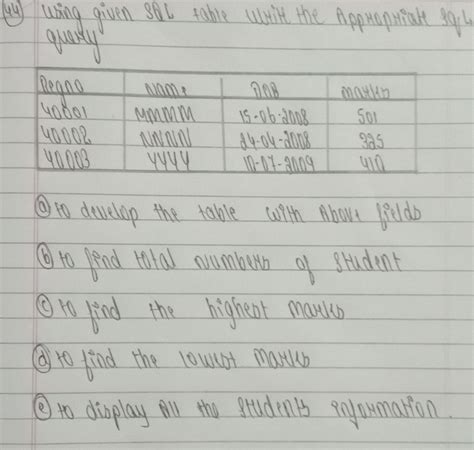 44 using given SQL table write the Appropriate SQL
quary
Regno Name DOB Marks
40001 MMMM 15-06-2008 501
40002 NNNN 24-04-2008 325
40003 YYYY 10-07-2009 410
a to develop the table with Above fields
b to find total numbers of student
c to find the highest marks
d to find the lowest marks
e to display All the students information.